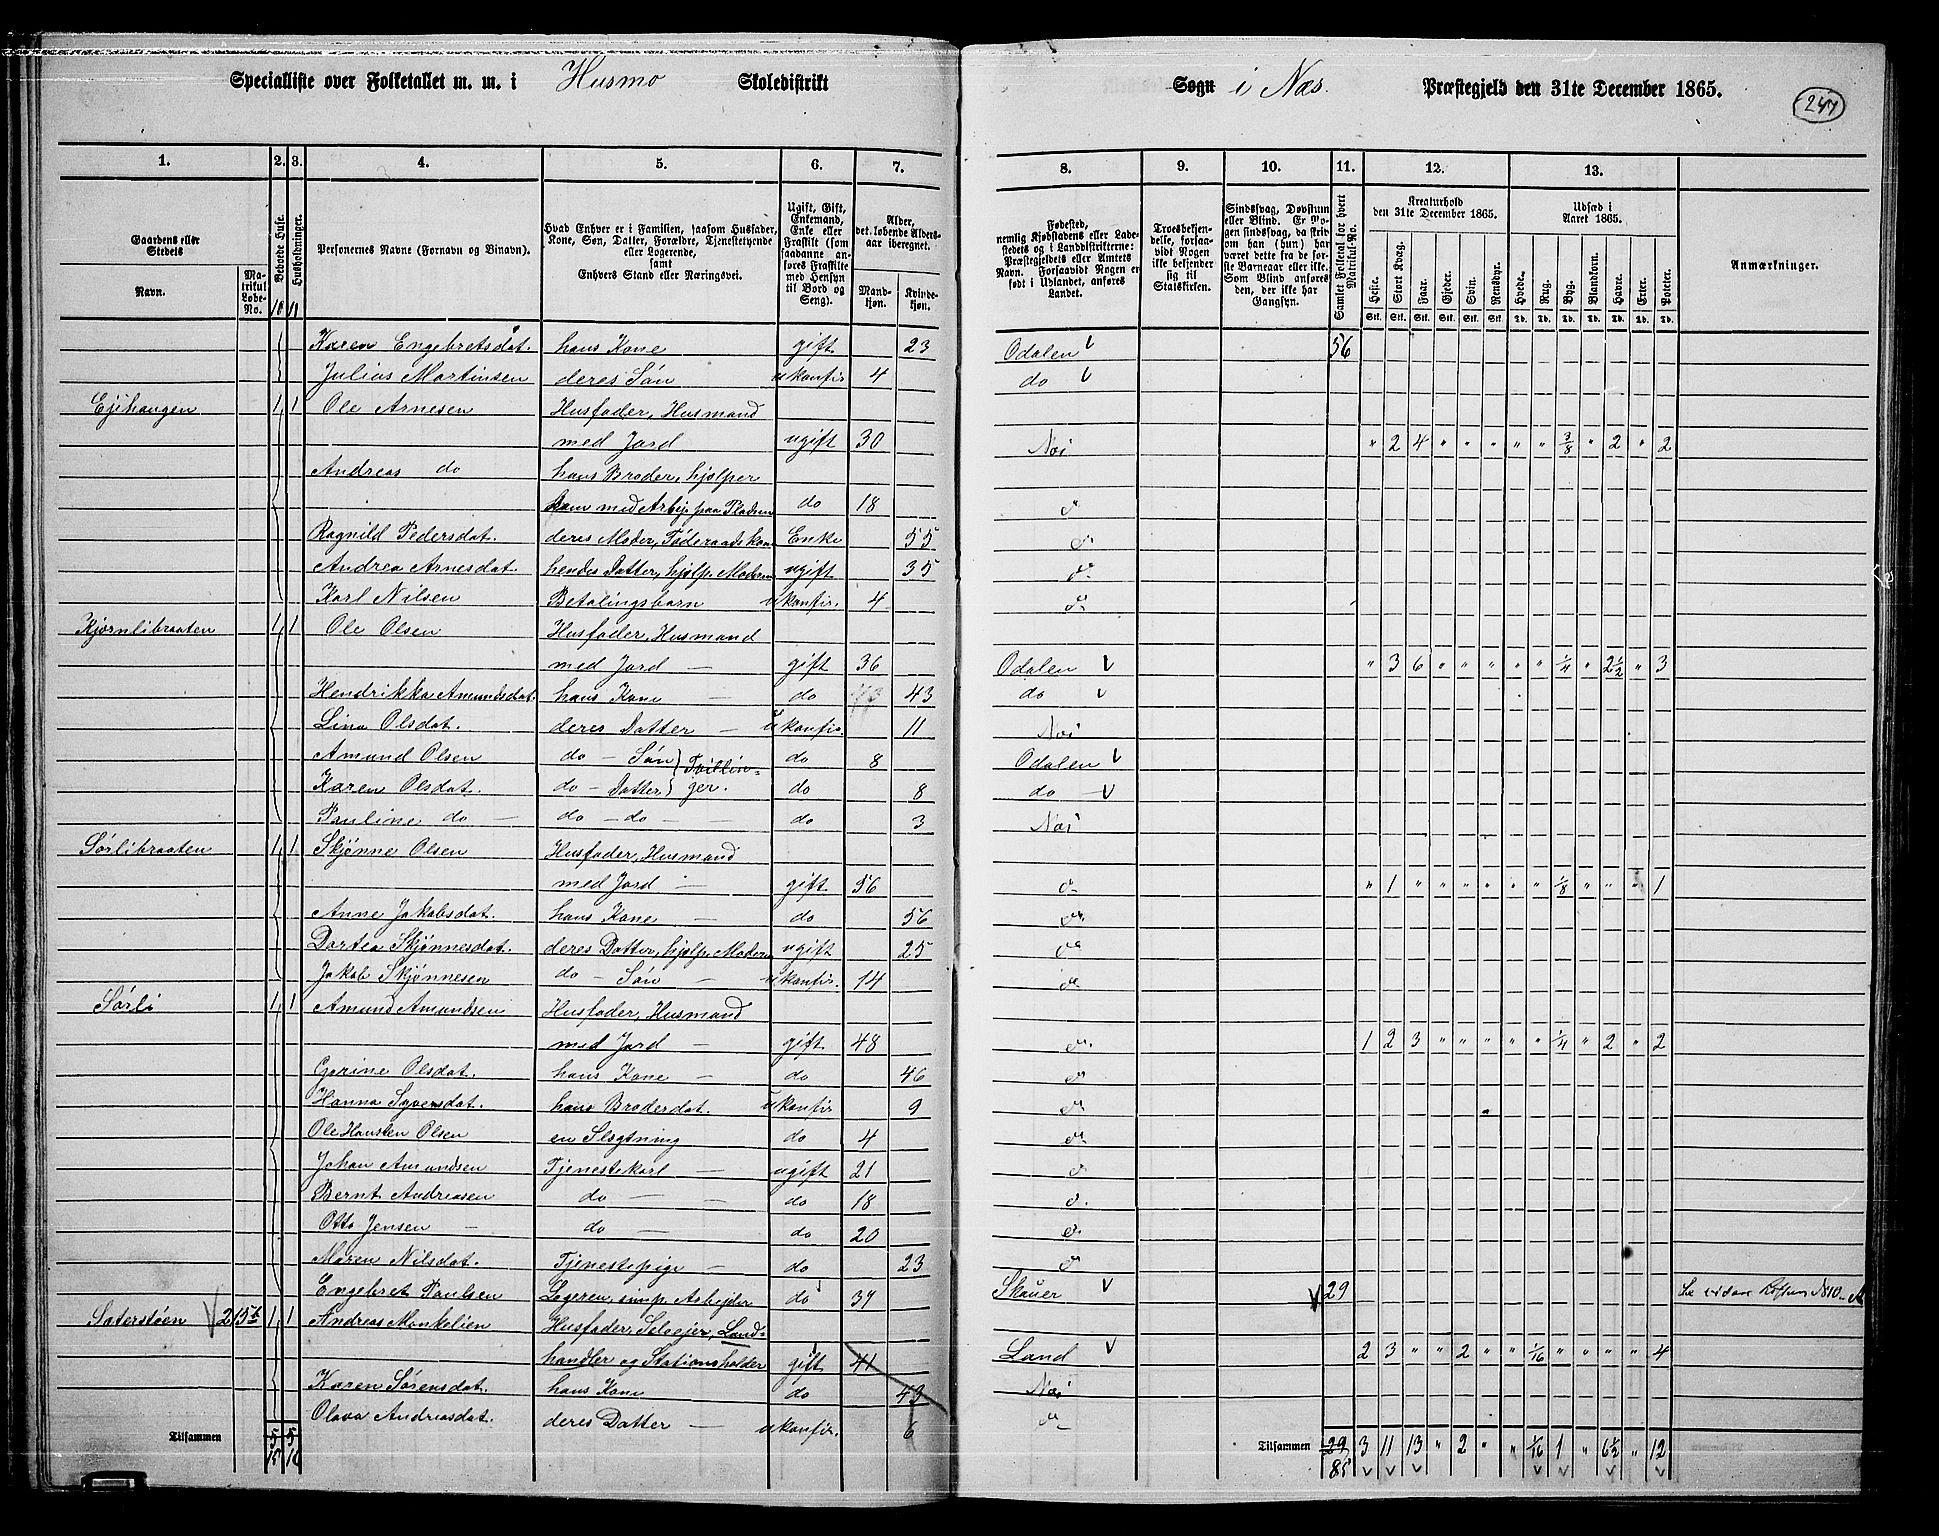 Specialliste over Folketallet m. m. i Husmo Skoledistrikt Sogn i Næs. Præstegjeld den 31te December 1865.
247
1. 2. 3. 4. 5. 6. 7. 8. 9. 10. 11. 12. 13.
Gaardens eller Stedets Navn.
Matrikul Løbe-No.
Beboede Huse.
Husholdninger.
Personernes Navne (Fornavn og Binavn).
Hvad Enhver er i Familien, saasom Husfader, Kone, Søn, Datter, Forældre, Tjenestetyende eller Logerende, samt Enhvers Stand eller Næringsvei.
Ugift, Gift, Enkemand, Enke eller Fraskilt (som saadanne anføres Fraskilte med Hensyn til Bord og Seng).
Alder, det løbende Aldersaar iberegnet.
Mandkjøn. Kvindekjøn.
Fødested, nemlig Kjøbstadens eller Ladestedets og i Landdistrikterne: Præstegjeldets eller Amtets Navn. Forsaavidt Nogen er født i Udlandet, anføres Landet.
Troesbekjendelse, forsaavidt Nogen ikke bekjender sig til Statskirken.
Sindssvag, Døvstum eller Blind. Er Nogen sindssvag, da skrives om han (hun) har været dette fra de første Barneaar eller ikke. Som Blind anføres den, der ikke har Gangsyn.
Samlet Folketal for hvert Matrikul-No.
Kreaturhold den 31te December 1865.
Heste. Stort Kvæg. Faar. Gjeder. Svin. Rensdyr.
Udsæd i Aaret 1865.
Hvede. Rug. Byg. Blandkorn. Havre. Erter. Poteter.
Anmærkninger.
Stk. Stk. Stk. Stk. Stk. Stk. Td. Td. Td. Td. Td. Td. Td.
10 11
Karen Engebretsdat. hans Kone gift 23 Odalen 56
Julius Martinsen deres Søn ukonfir 4 do
Ejehaugen 1 1 Ole Arnesen Husfader, Husmand
med Jord ugift 30 Næs " 2 4 " " " " " 3/8 " 2 " 2
Andreas do hans Broder, hjælper
ham med Arbejd paa Pladsen do 18 d
Ragnild Pedersdat. deres Moder, Føderaadskone Enke 55 d
Andrea Arnesdat. hendes Datter, hjælp. Moderen ugift 35 d
Karl Nilsen Betalingsbarn ukonfir. 4 d
Kjørnlibraaten 1 1 Ole Olsen Husfader, Husmand
med Jord — gift 36 Odalen " 3 6 " " " " " 1/4 " 2 1/2 " 3
Hendrikka Amundsdat. hans Kone — do 43 do
Lina Olsdat. deres Datter — ukonfir. 11 Næs
Amund Olsen do — Søn Tvillin- do 8 Odalen
Karen Olsdat. do — Datter ger. do 8 do
Pauline do — do — do — do 3 Næs
Sørlibraaten 1 1 Skjønne Olsen Husfader, Husmand
med Jord — gift 56 d " 1 " " " " " " 1/8 " " " 1
Anne Jakobsdat. hans Kone — do 56 d
Dortea Skjønnesdat. deres Datter, hjælp. Moderen ugift 25 d
Jakob Skjønnesen do — Søn — ukonfir. 14 d
Sørli 1 1 Amund Amundsen Husfader, Husmand
med Jord — gift 48 d 1 2 3 " " " " " 1/4 " 2 " 2
Gorine Olsdat. hans Kone — do 46 d
Hanna Syversdat. hans Broderdat. ukonfir 9 d
Ole Hansten Olsen en Slægtning do 4 d
Johan Amundsen Tjenestekarl — ugift 21 d
Bernt Andreasen do — — do 18 d
Otto Jensen — do — do 20 d
Maren Nilsdat. Tjenestepige — do 23 d
Engebret Paulsen Logeren, simp. Arbejder do 34 Skauer 29
Saterstøen 215b 1 1 Andreas Monkelien Husfader, Selvejer, Land-
handler og Stationsholder gift 41 Land 2 3 " " 2 " " 1/16 " " " " 4
Karen Sørensdat. hans Kone do 43 Næs
Olava Andreasdat. deres Datter — ukonfir. 6 d
Tilsammen 5 5
15 16
Tilsammen 29 3 11 13 " 2 " " 1/16 1 " 6 1/2 " 12
85